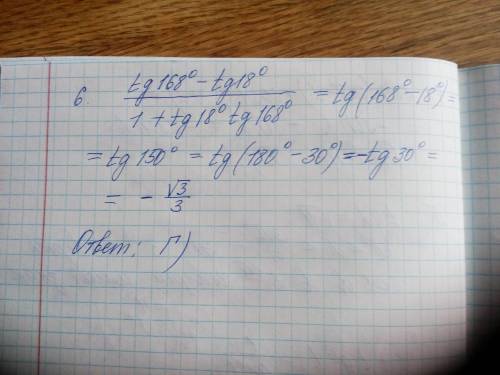 6. (tg 168° - tg 18°) / (1 + tg 18° tg 168°) = tg (168° - 18°) =
= tg 150° = tg (180° - 30°) = -tg 30° =
= - √3/3
Ответ: Г)